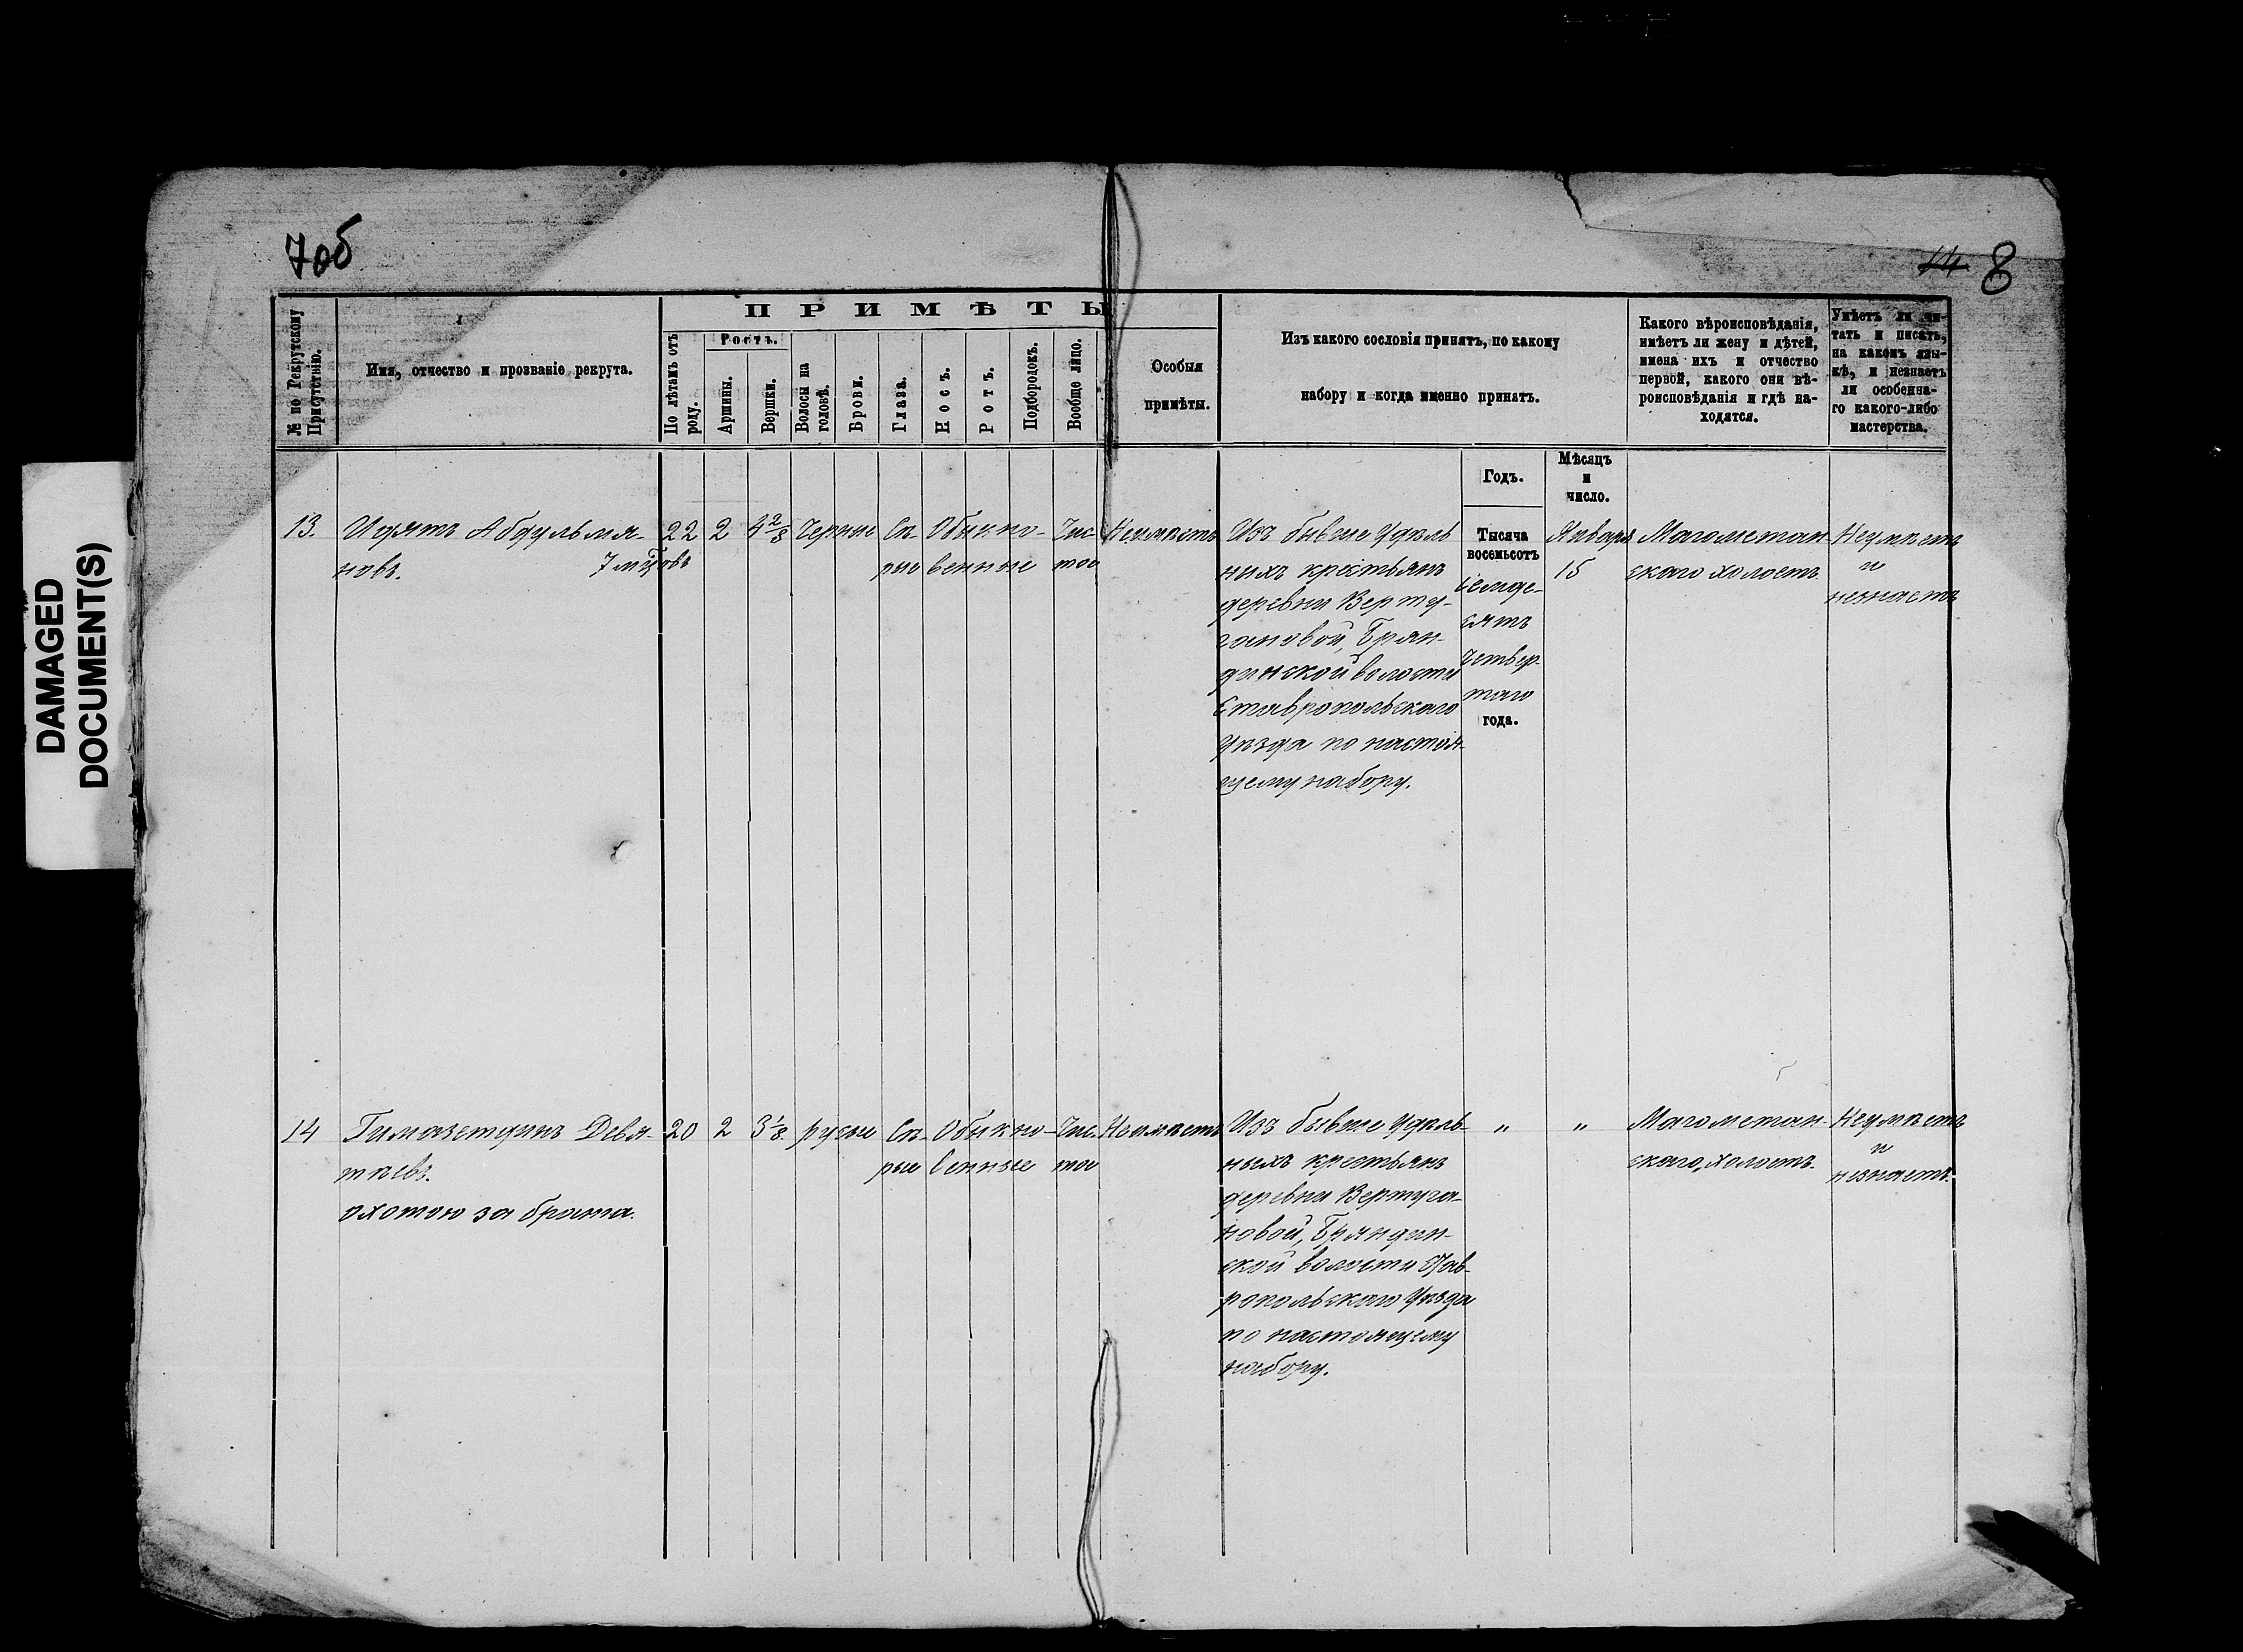 DAMAGED
DOCUMENT(S)
7об
14 8
№ по Рекрутскому Присутствію.
Имя, отчество и прозваніе рекрута.
ПРИМѢТЫ
По лѣтамъ отъ роду.
Ростъ.
Аршины.
Вершки.
Волосы на головѣ.
Брови.
Глаза.
Носъ.
Ротъ.
Подбородокъ.
Вообще лицо.
Особыя
примѣты.
Изъ какого сословія принятъ, по какому
набору и когда именно принятъ.
Какого вѣроисповѣданія,
имѣетъ ли жену и дѣтей,
имена ихъ и отчество
первой, какого они вѣ-
роисповѣданія и гдѣ на-
ходятся.
Умѣетъ ли чи-
тать и писать,
на какомъ язы-
кѣ, и незнаетъ
ли особенна-
го какого-либо
мастерства.
Годъ.
Мѣсяцъ
и
число.
13. Идятъ Абдульмя- 22 2 4 2/8 Черные Сѣ- Обыкно- Чис- Неимѣетъ
новъ. 7 мцовъ рые венные тое
Изъ бывше Удѣль
ныхъ крестьянъ
деревни Верту-
гановой, Брян-
динской волости
Ставропольскаго
Уѣзда по настоя-
щему набору.
Тысяча
восемьсотъ
семде-
сятъ
четвер-
таго
года.
Января
15
Магометан-
скаго холостъ.
Неумѣетъ
и
незнаетъ
14 Гимазетдинъ Девя- 20 2 3 1/8 русые Сѣ- Обыкно- Чис- Неимѣетъ
ткевъ. рые венные тое
охотою за брата.
Изъ бывше Удѣль-
ныхъ крестьянъ
деревни Вертуга-
новой, Брядин-
ской волости Став-
ропольскаго Уѣзда
по настоящему
набору.
" "
Магометан-
скаго, холостъ.
Неумѣетъ
и
незнаетъ.